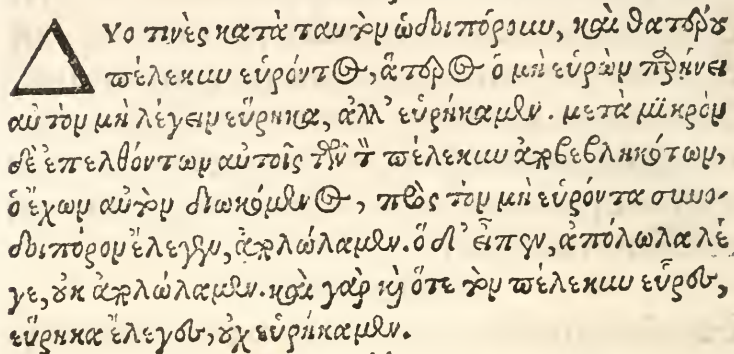 ΔΥο τινὲς κατὰ ταυτὸν ὡδοιπόρουν, καὶ θατέρου
πέλεκυν εὑρόντος, ἅτερος ὁ μὴ εὑρὼν παρῄνει
αὐτὸν μὴ λέγειν εὕρηκα, ἀλλ' εὑρήκαμεν. μετὰ μικρὸν
δὲ ἐπελθόντων αὐτοῖς τῶν τὸν πέλεκυν ἀποβεβληκότων,
ὁ ἔχων αὐτὸν διωκόμενος, πρὸς τὸν μὴ εὑρόντα συνο-
δοιπόρον ἔλεγεν, ἀπολώλαμεν. ὁ δ' εἶπεν, ἀπόλωλα λέ
γε, οὐκ ἀπολώλαμεν. καὶ γὰρ καὶ ὅτε τὸν πέλεκυν εὗρες,
εὕρηκα ἔλεγες, οὐχ εὑρήκαμεν.